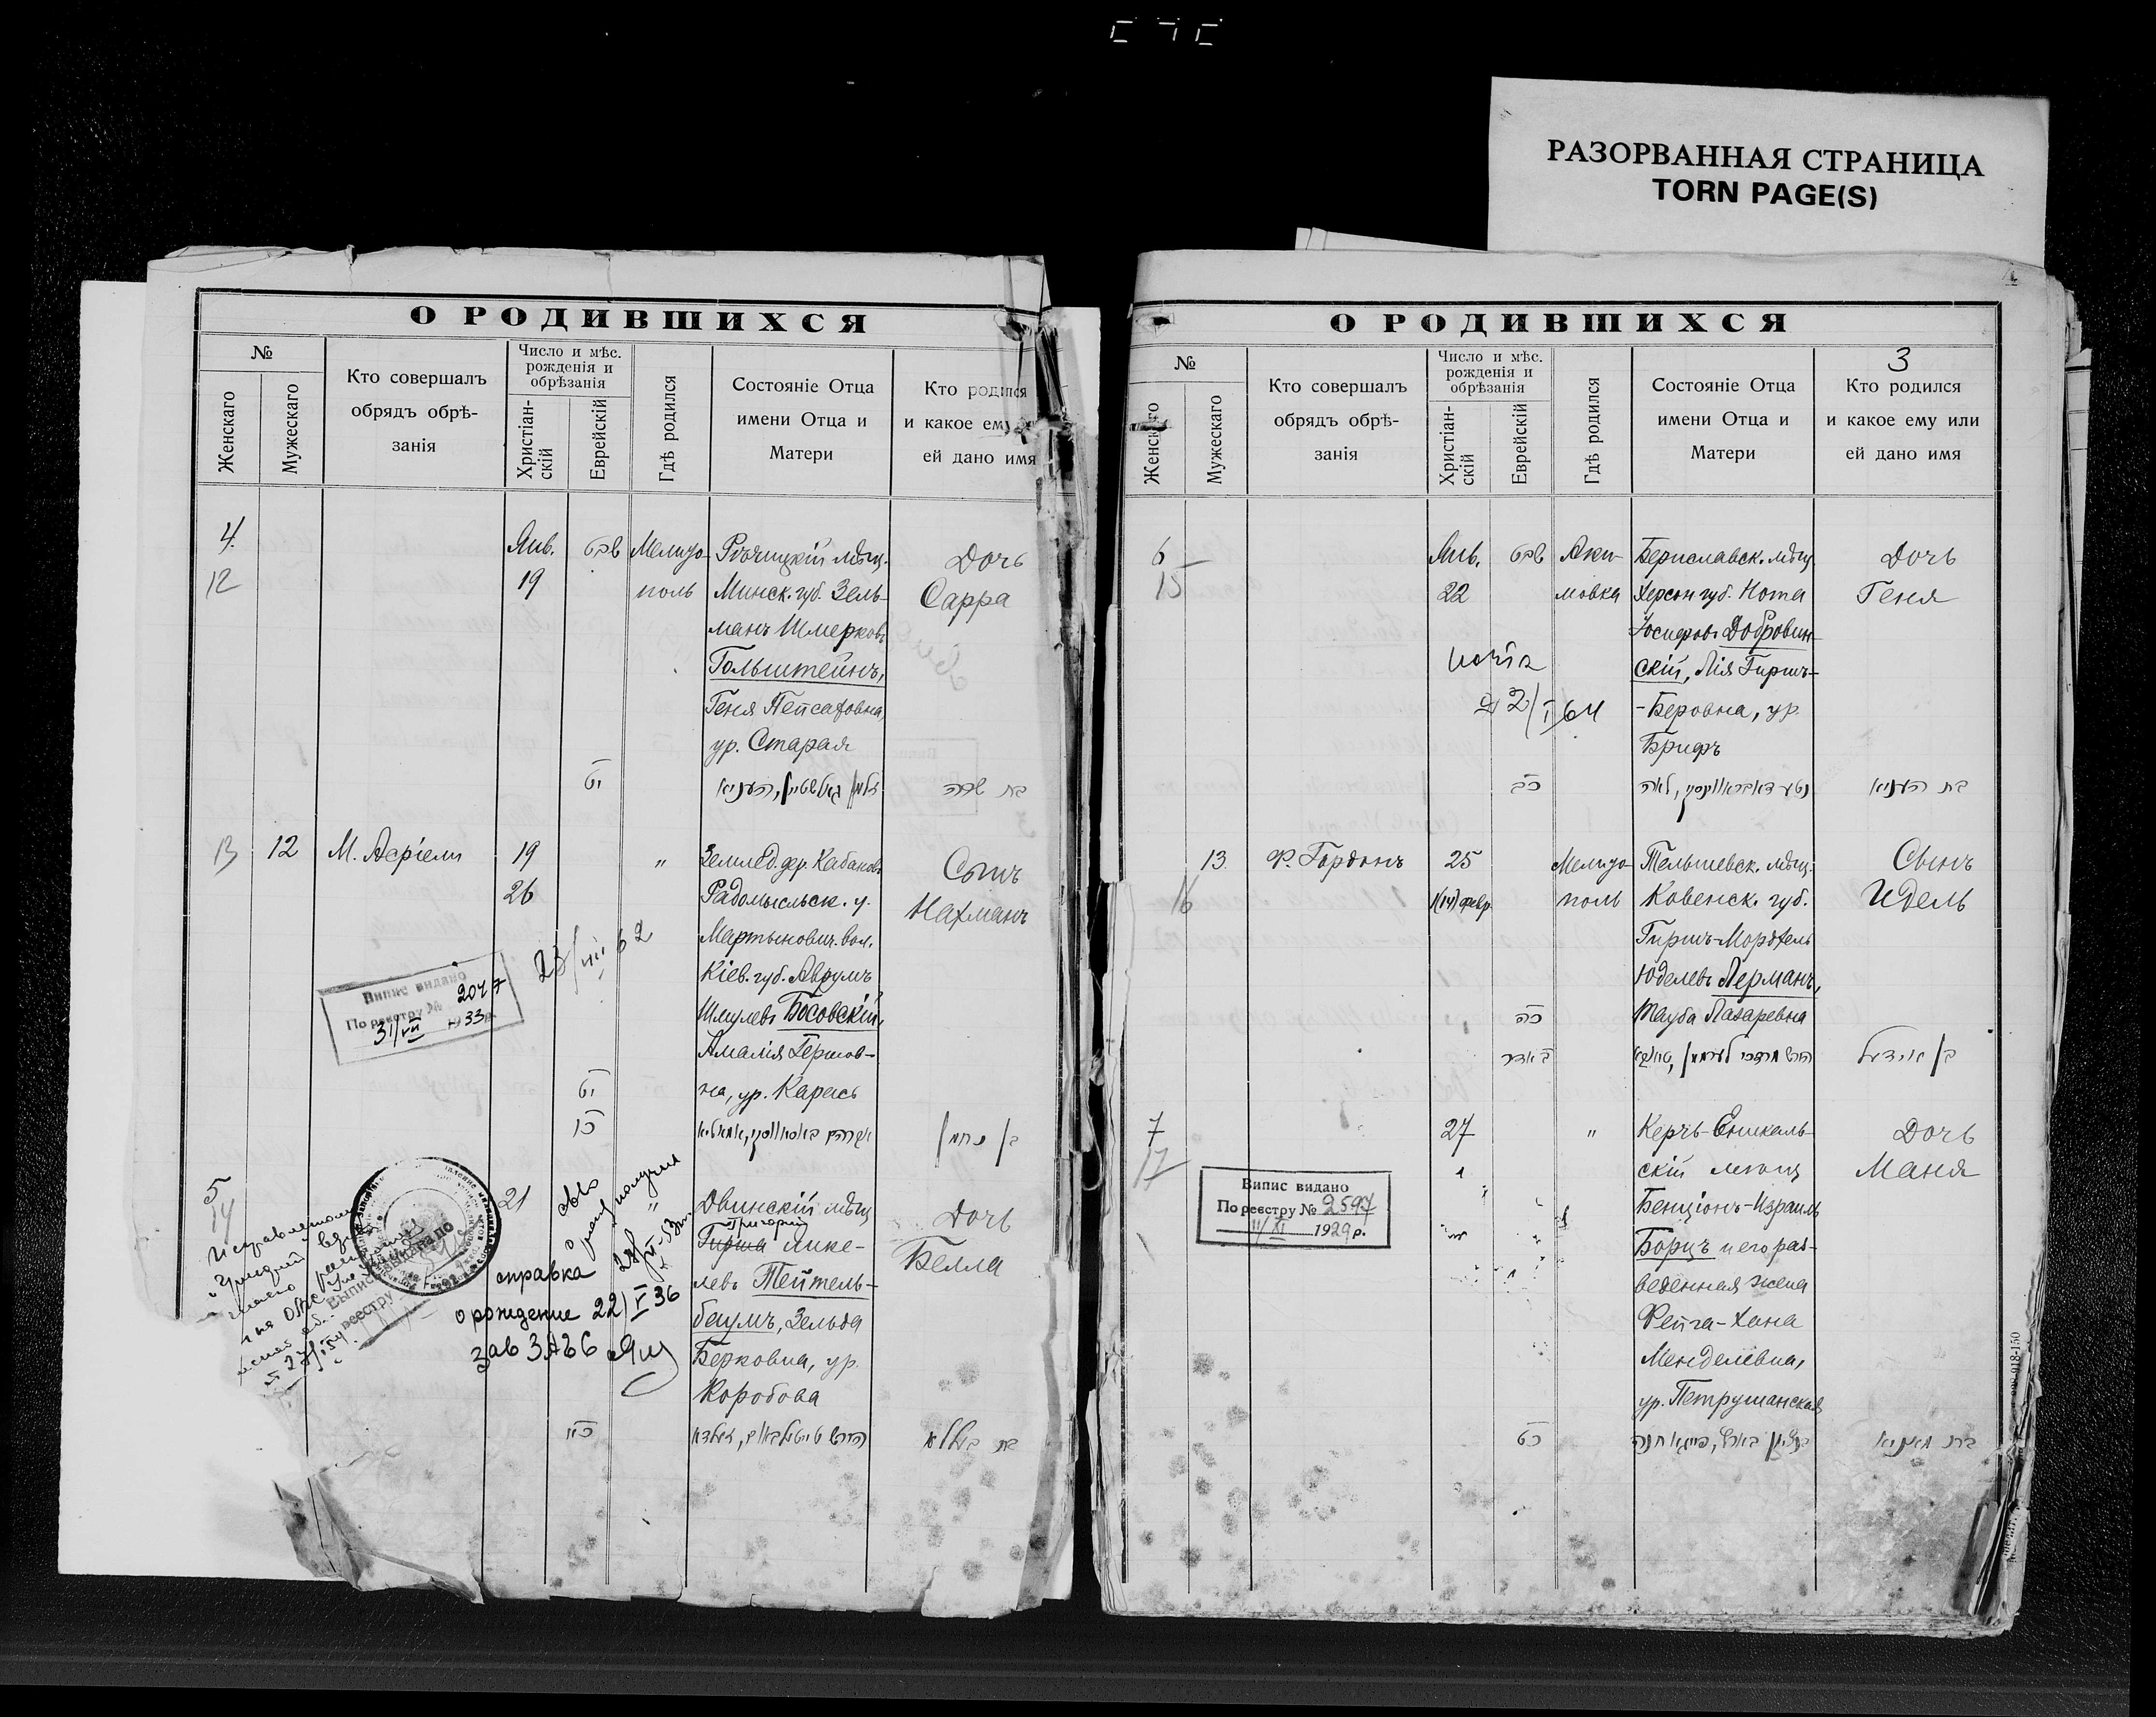 РАЗОРВАННАЯ СТРАНИЦА
TORN PAGE(S)
О РОДИВШИХСЯ
№
Женскаго
Мужескаго
Кто совершалъ
обрядъ обрѣ-
занія
Число и мѣс.
рожденія и
обрѣзанія
Христіан-
скій
Еврейскій
Гдѣ родился
Состояніе Отца
имени Отца и
Матери
Кто родился
и какое ему
ей дано имя
4
12
Янв.
19
שבט
יט
Мелито-
поль
Рѣчицкій мѣщ.
Минск. губ. Зель-
манъ Шмерковъ
Гольштейнъ,
Геня Пейсаховна,
ур. Старая
Дочь
Сарра
בת שרה
13
12
М. Асріели
19
26
יט
כו
"
Землед. дер. Кабановъ
Радомысльск. у.
Мартынович. вол.
Кіев. губ. Аврумъ
Шмулевъ Босовскій,
Амалія Гершов-
на, ур. Карась
Сынъ
Нахманъ
בן נחמן
23/VIII 62
Випис видано
По реєстру № 2047
31/VII 1933 р.
5
14
21
כא
"
Двинскій мѣщ.
Григорий
Гирша
левъ Тейтель-
баумъ, Зельда
Берковна, ур.
Коробова
הירש טייטעלבוים, זעלדא
Дочь
Белла
בת בעללא
справка
о рождение 22/V 36
зав ЗАГС
О РОДИВШИХСЯ
№
Женскаго
Мужескаго
Кто совершалъ
обрядъ обрѣ-
занія
Число и мѣс.
рожденія и
обрѣзанія
Христіан-
скій
Еврейскій
Гдѣ родился
Состояніе Отца
имени Отца и
Матери
3
Кто родился
и какое ему или
ей дано имя
6
15
Янв.
22
שבט
כב
Аки-
мовка
Бериславск. мѣщ.
Херсон губ. Нота
Іосифовъ Добровин-
скій, Лія Гиршъ-
-Беровна, ур.
Брифъ
Дочь
Геня
בת העניא
2/I 64
13
16
Ф. Гордонъ
25
1(14) февр.
כה
Мелито-
поль
Тельшевск. мѣщ.
Ковенск. губ.
Гиршъ-Мордхель
Юделевъ Лерманъ,
Тауба Лазаревна
Сынъ
Идель
בן אידעל
7
17
27
כט
"
Керчь-Еникаль-
скій мѣщ
Бенціонъ-Израиль
Борцъ и его раз-
веденная жена
Фейга-Хана
Менделевна,
ур. Петрушанская
Дочь
Маня
בת מאניא
Випис видано
По реєстру № 2597
11/XI 1929 р.